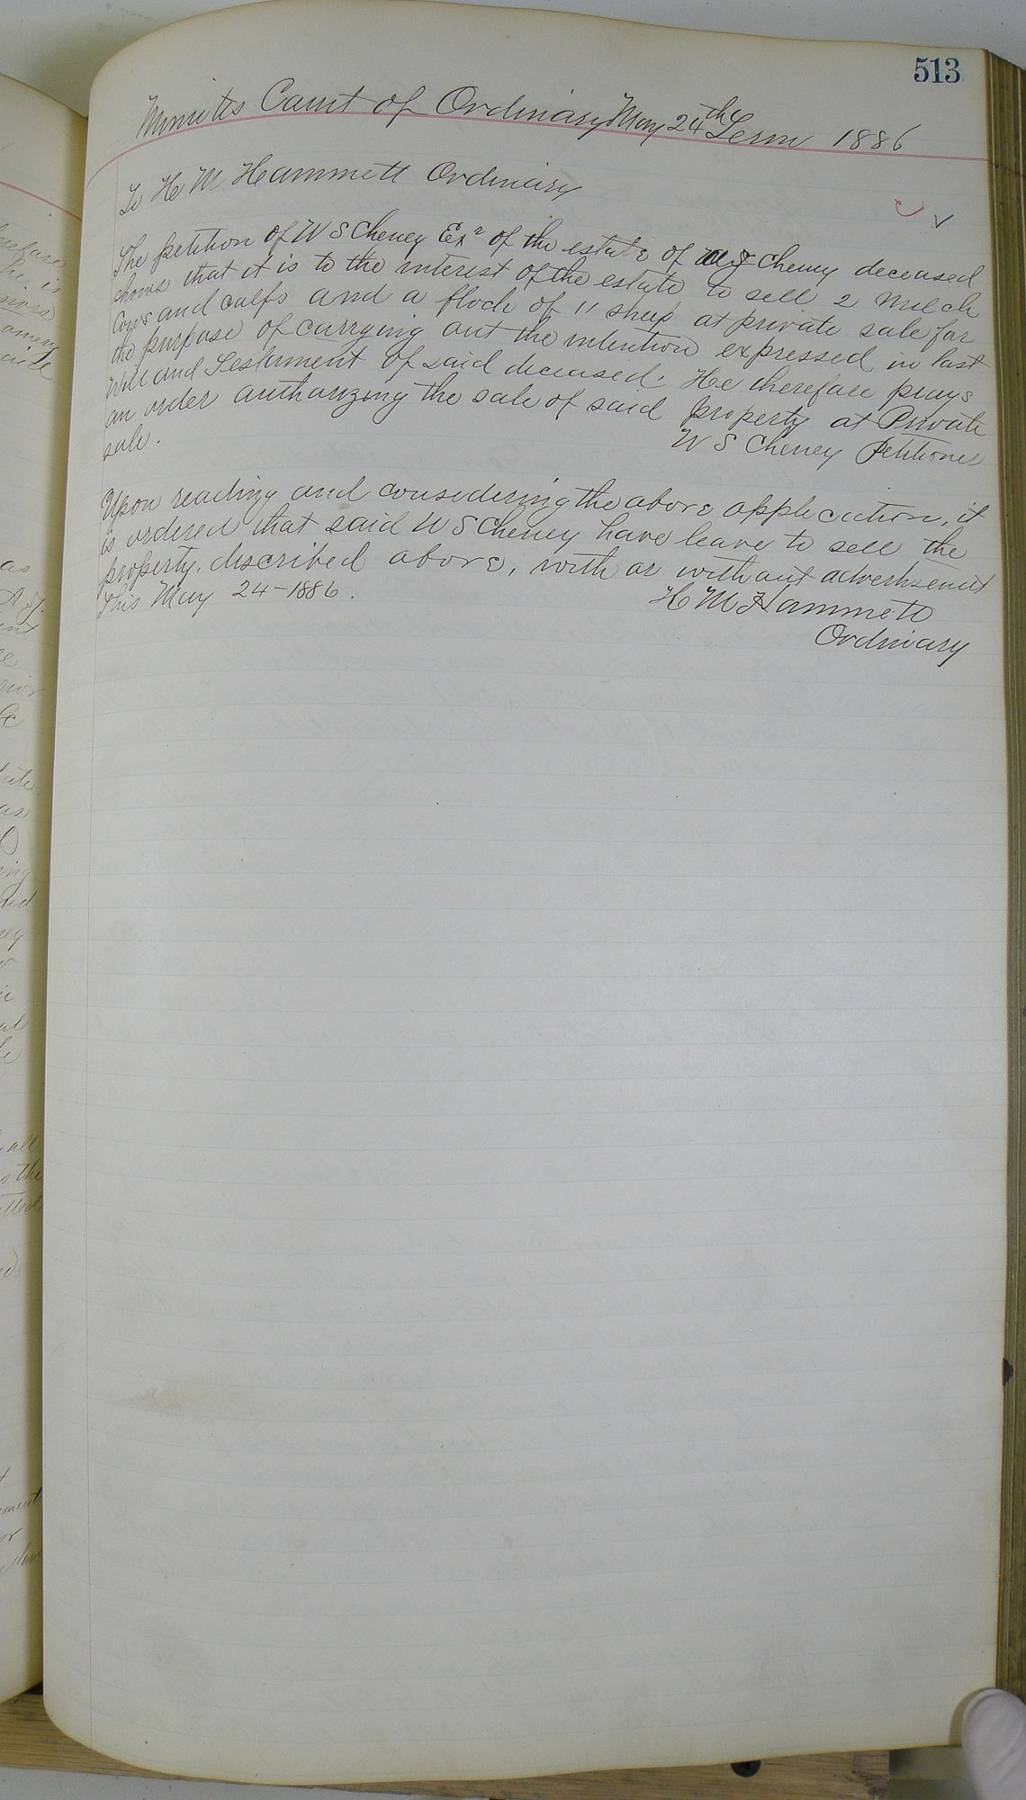 513
Minutes Court of Ordinary May 24th Term 1886
To H M Hammett Ordinary
The petition of W S Cheney Exr of the estate of A J Cheney deceased
shows that it is to the interest of the estate to sell 2 milch
Cows and calfs and a flock of 11 sheep at private sale for
the purpose of carrying out the intention expressed in last
will and Testament of said deceased. He therefore prays
an order authorizing the sale of said property at Private
sale.
W S Cheney Petitioner
Upon reading and considering the above application, it
is ordered that said W S Cheney have leave to sell the
property, discribed above, with or without advertisement
This May 24-1886.
H M Hammett
Ordinary